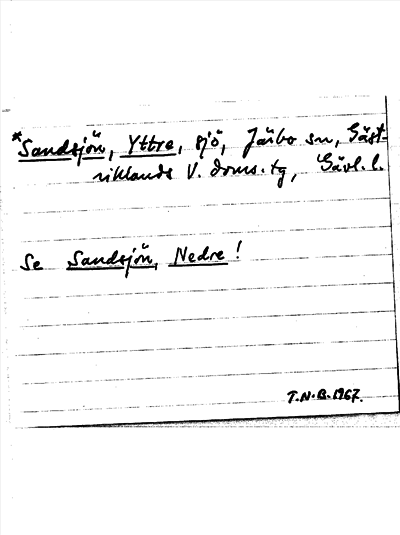 *Sandsjön, Yttre, sjö, Järbo sn, Gäst-
riklands V. doms.tg, Gävl.l.
Se Sandsjön, Nedre!
T.N.B. 1967.